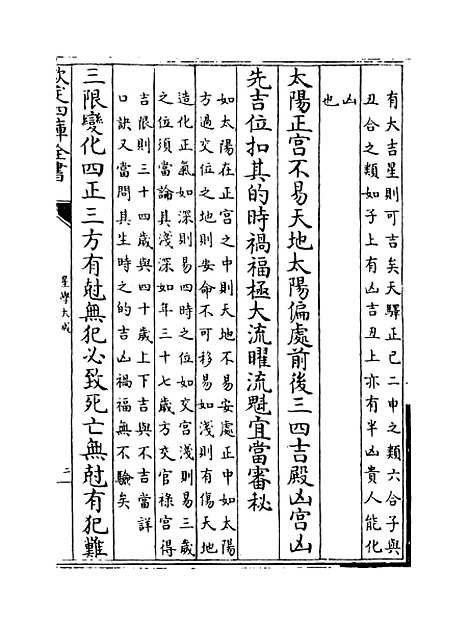 有大吉星則可吉矣天驛正已二申之類六合子與
丑合之類如子上有凶吉丑上亦有半凶貴人能化
凶
也
太陽正宫不易天地太陽偏處前後三四吉殿凶宫凶
先吉位扣其的時禍福極大流曜流魁宜當審秘
如太陽在正宫之中則天地不易安處正中如太陽
方過交位之地則安命不可移易如淺則有傷天地
造化正氣如深則易四時之位如交宫淺則易三歲
之位須當論其淺深如年三十七歲方交官禄宫得
吉限則三十四歲與四十歲上下吉與不吉當詳
口訣又當問其生時之的吉凶禍福無不驗矣
三限變化四正三方有尅無犯必致死亡無尅有犯難
欽定四庫全書
星學大成
二